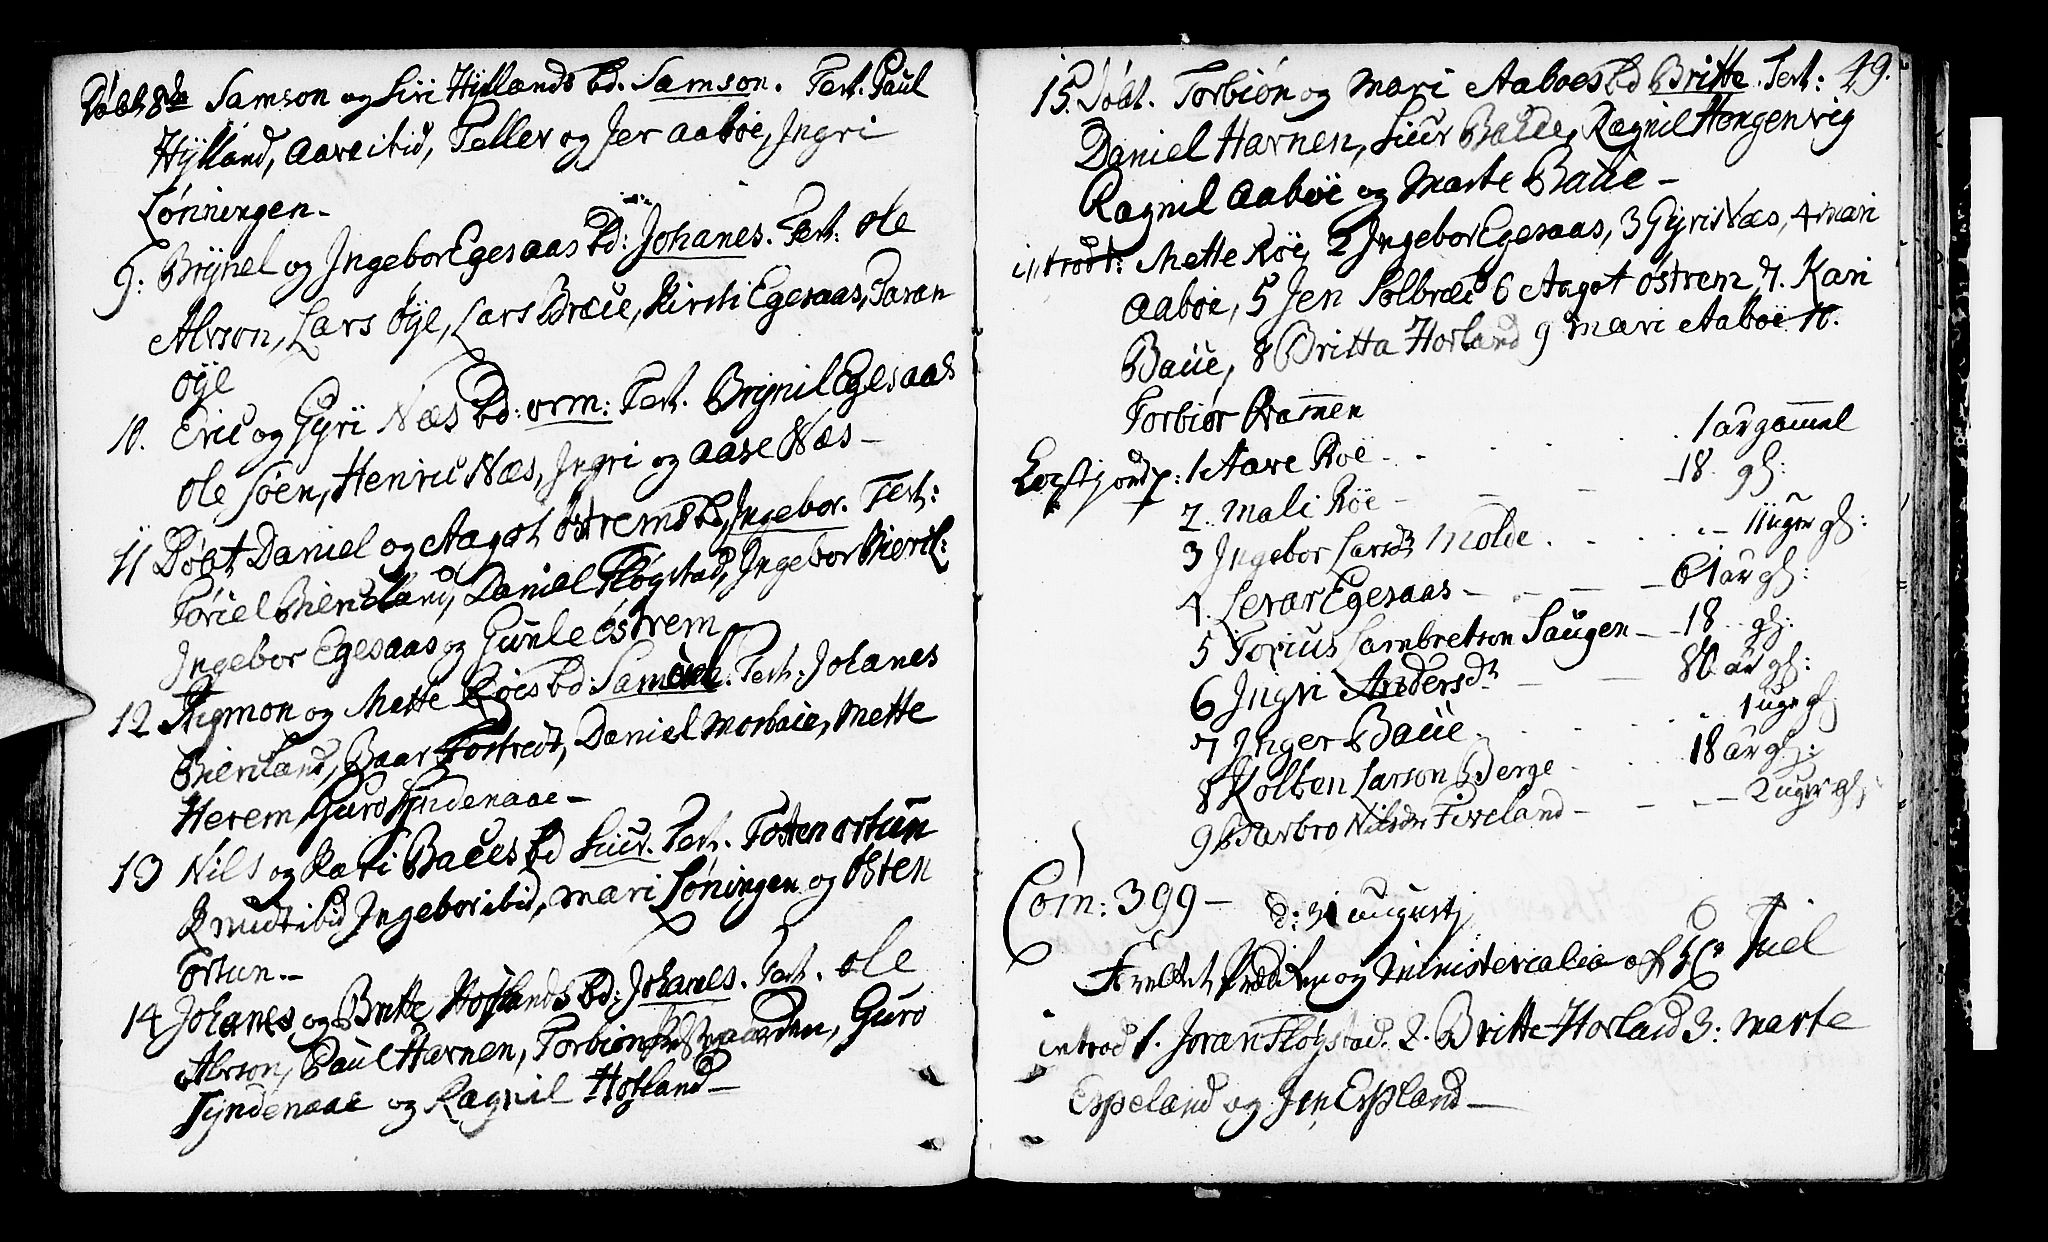 Döbt 8de Samson og Siri Hyllands bd. Samson. Test. Paul
Hylland, Aare ibid, Teller og Jer Aabøe, Ingri
Lönningen.
9: Brynel og Ingebor Egesaas bd: Johanes. Test: Ole
Alvson, Lars Øye, Lars Braue, Kirsti Egesaas, Saran
Øye
10. Eric og Gyri Næs bd: Orm: Test. Brynil Egesaas
Ole Söen, Henric Næs, Ingri og Aase Næs -
11 Döbt Daniel og Aagot Östrems bd, Ingebor. Test:
Toriel Biericland, Daniel Flögstad, Ingebor Biericl:
Ingebor Egesaas og Gunle Östrem
12 Sigmon og Mette Röes bd: Samuel. Test: Johanes
Biericland, Baar Tostredt, Daniel Morbaie, Mette
Herem, Guro Tyndenaae -
13 Nils og Kari Baues bd Siur. Test. Tosten Ortun
Knudt ibid Ingebor ibid, Mari Löningen og Östen
Ortun. -
14 Johanes og Britte Hoflands bd: Johanes. Test. Ole
Alvson, Paul Harnen, Torbiön gaarden, Guro
Tyndenaae og Ragnil Hofland -
49.
15. Döbt. Torbiön og Mari Aaboes bd Britte. Test:
Daniel Harnen, Siur Baue, Ragnil Hongenvig
Ragnil Aaboe og Marte Baue -
introd: Mette Röe, 2 Ingebor Egesaas, 3 Gyri Næs, 4 Mari
Aaboe, 5 Jen Solbræc 6 Aagot Östrem 7. Kari
Baue, 8 Britta Horland 9 Mari Aaboe 10.
Torbiör Ramnen
1 Aare Röe - . . . . 1 ar gammel
2. Mali Röe - - - 18 gl:
3 Ingebor Larsdr Molde . . . - 11 uger gl:
4. Levar Egesaas - - - 61 ar gl:
5 Torius Lambretson Saugen - 18 gl:
6 Ingri Andersdr - - 80 ar gl:
7 Inger Baue . . . . 1 uge gl
8 Kolben Larson Berge . . . 18 ar gl:
9 Barbro Nilsdr Fiveland - - - 2 uger gl:
Com: 399 -
d: 31 augustj
og ministerialia af Hr Juel
introd 1. Joran Flögstad. 2. Britte Horland 3: Marte
Espeland og Jen Espland -